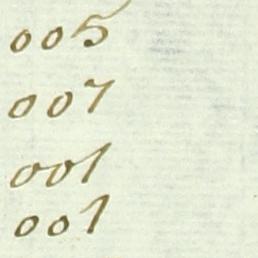 005
007
001
001